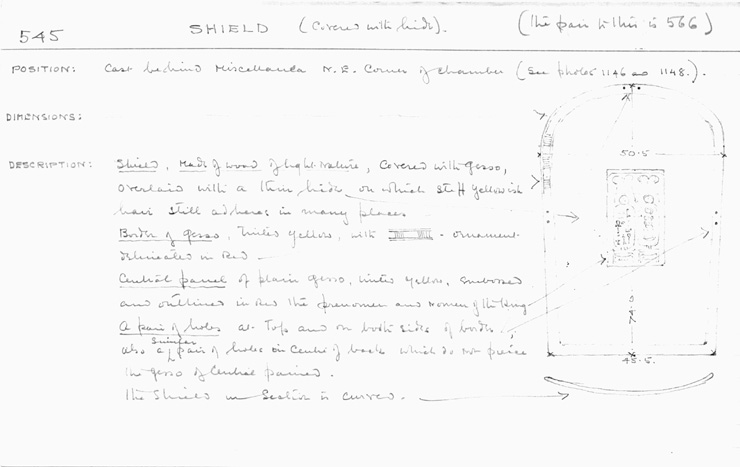 545 SHIELD (Covered with hide). (The pair to this is 566)
POSITION: Cast behind Miscellanea N.E. Corner of chamber (See photos 1146 and 1148.).
DIMENSIONS:
DESCRIPTION: Shield, Made of wood of light nature, Covered with gesso,
overlaid with a thin hide on which stiff yellowish
hair still adheres in many places
Border of gesso, tinted yellow, with - ornament
delineated in Red -
Central panel of plain gesso, tinted yellow, embossed
and outlined in Red the prenomen and nomen of the King
A pair of holes at Top and on both sides of border;
also a similar pair of holes in Centre of back which do not pierce
the gesso of Central panel.
The Shield in Section is curved.
50.5
74.0
45.5.